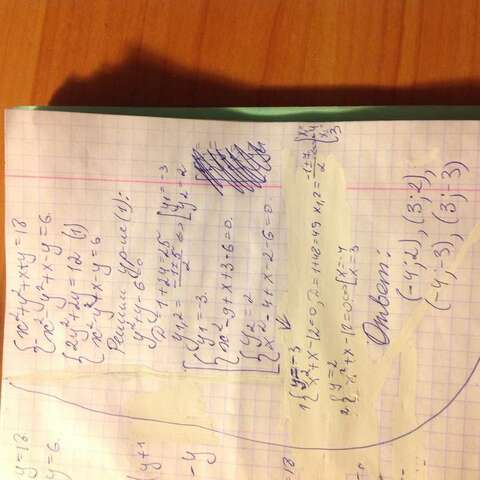 {x²+y²+x+y=18
{x²-y²+x-y=6.
{2y²+2y=12 (1)
{x²-y²+x-y=6
Решим ур-ие (1):
y²+y-6=0
D=1+24=25
y₁,₂ = (-1±5)/2 ⇔ [y₁=-3
[y₂=2
{y₁=-3.
{x²-9+x+3-6=0.
{y₂=2
{x²-4+x-2-6=0
1) {y=-3
{x²+x-12=0, D=1+48=49 x₁,₂=(-1±7)/2 [x₁=-4
[x₂=3
2) {y=2
{x²+x-12=0, ⇔ [x=-4
[x=3
Ответ:
(-4;2), (3;2),
(-4;-3), (3;-3)
y=18
y=6.
y+1
-y
=18